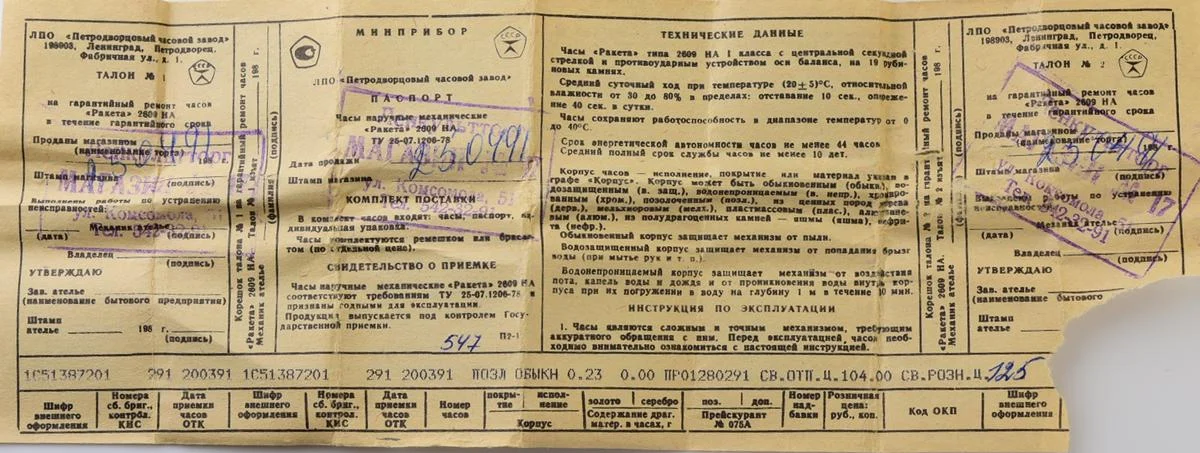 ЛПО «Петродворцовый часовой завод»
198903, Ленинград, Петродворец,
Фабричная ул., д. 1.
ТАЛОН № 1
на гарантийный ремонт часов
«Ракета» 2609 НА
в течение гарантийного срока
Проданы магазином
(наименование торга)
198
Штамп магазина
(подпись)
Выполнены работы по устранению
неисправностей:
Механик ателье
(дата) (подпись)
Владелец
(подпись)
УТВЕРЖДАЮ
Зав. ателье
(наименование бытового предприятия)
Штамп
ателье 198 г.
(подпись)
Корешок талона № 1 на гарантийный ремонт часов
«Ракета» 2609 НА. Талон № 1 изъят 198 г.
Механик ателье
(фамилия) (подпись)
МИНПРИБОР
СССР
ЛПО «Петродворцовый часовой завод»
ПАСПОРТ
Часы наручные механические
«Ракета» 2609 НА
ТУ 25-07.1206-78
Дата продажи
250491
Штамп магазина
МАГАЗИН
ул. Комсомола, 51
Тел. 542-32-91
КОМПЛЕКТ ПОСТАВКИ
В комплект часов входят: часы, паспорт, ин-
дивидуальная упаковка.
Часы комплектуются ремешком или брасле-
том (по отдельной цене).
СВИДЕТЕЛЬСТВО О ПРИЕМКЕ
Часы наручные механические «Ракета» 2609 НА
соответствуют требованиям ТУ 25-07.1206-78 и
признаны годными для эксплуатации.
Продукция выпускается под контролем Госу-
дарственной приемки.
547
П2-1
ТЕХНИЧЕСКИЕ ДАННЫЕ
Часы «Ракета» типа 2609 НА I класса с центральной секундной
стрелкой и противоударным устройством оси баланса, на 19 руби-
новых камнях.
Средний суточный ход при температуре (20±5)°С, относительной
влажности от 30 до 80% в пределах: отставание 10 сек., опереже-
ние 40 сек. в сутки.
Часы сохраняют работоспособность в диапазоне температур от 0
до 40°С.
Срок энергетической автономности часов не менее 44 часов
Средний полный срок службы часов не менее 10 лет.
Корпус часов — исполнение, покрытие или материал указан в
графе «Корпус». Корпус может быть обыкновенным (обыкн.), во-
дозащищенным (в. защ.), водонепроницаемым (в. непр.), хромиро-
ванным (хром.), позолоченным (позл.), из ценных пород дерева
(дерв.), мельхиоровым (мелх.), пластмассовым (плас.), алюминие-
вым (алюм.), из полудрагоценных камней — яшмы (яшма), нефри-
та (нефр.).
Обыкновенный корпус защищает механизм от пыли.
Водозащищенный корпус защищает механизм от попадания брызг
воды (при мытье рук и т. п.).
Водонепроницаемый корпус защищает механизм от воздействия
пота, капель воды и дождя и от проникновения воды внутрь кор-
пуса при их погружении в воду на глубину 1 м в течение 30 мин.
ИНСТРУКЦИЯ ПО ЭКСПЛУАТАЦИИ
1. Часы являются сложным и точным механизмом, требующим
аккуратного обращения с ним. Перед эксплуатацией часов необ-
ходимо внимательно ознакомиться с настоящей инструкцией.
Корешок талона № 2 на гарантийный ремонт часов
«Ракета» 2609 НА. Талон № 2 изъят 198 г.
Механик ателье
(фамилия) (подпись)
ЛПО «Петродворцовый часовой завод»
198903, Ленинград, Петродворец,
Фабричная ул., д. 1.
СССР
ТАЛОН № 2
на гарантийный ремонт часов
«Ракета» 2609 НА
в течение гарантийного срока
Проданы магазином
(наименование торга)
Штамп магазина
(подпись)
17
ул. Комсомола, 51
Тел. 542-32-91
Выполнены работы по устранению
неисправностей:
Механик ателье
(дата) (подпись)
Владелец
(подпись)
УТВЕРЖДАЮ
Зав. ателье
(наименование бытового
Штамп
ателье
1С51387201 291 200391 1С51387201 291 200391 ПОЗЛ ОБЫКН 0.23 0.00 ПР01280291 СВ.ОТП.Ц.104.00 СВ.РОЗН.Ц 125
Шифр внешнего оформления
Номера сб. бриг., контрол. КИС
Дата приемки часов ОТК
Шифр внешнего оформления
Номера сб. бриг., контрол. КИС
Дата приемки часов ОТК
Номер часов
покры-тие исполнение
Корпус
золото серебро
Содержание драг. матер. в часах, г
поз. доп.
Прейскурант № 075А
Номер над-бавки
Розничная цена: руб., коп.
Код ОКП
Шифр внешнего оформления